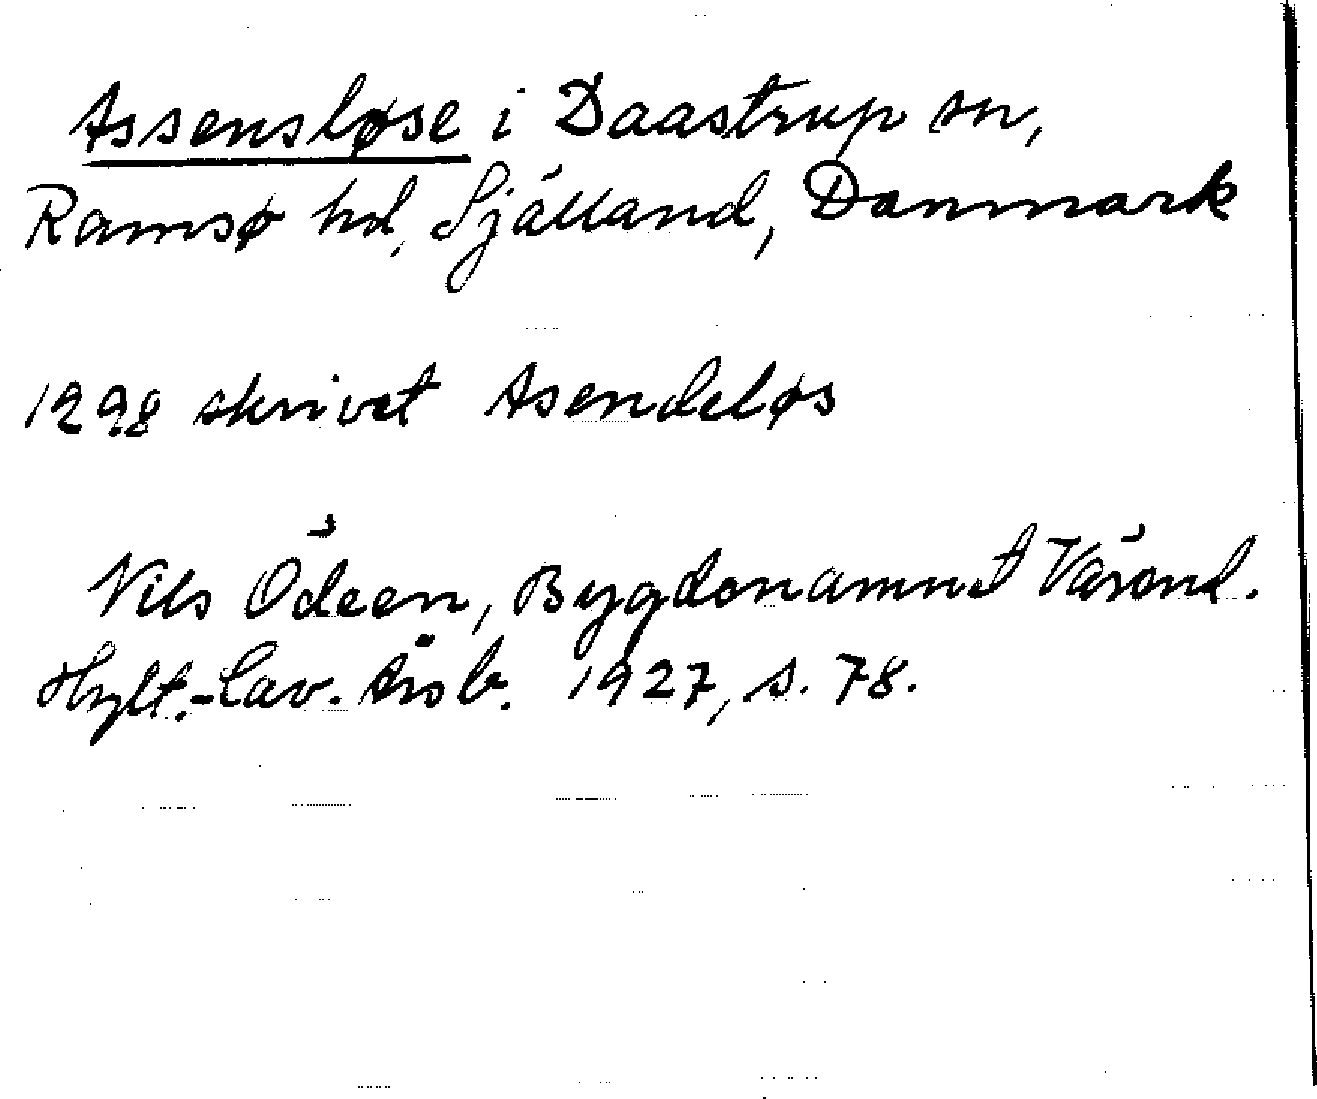 Assensløse i Daastrup sn,
Ramsø hd, Själland, Danmark
1298 skrivet Asendeløs
Nils Ödeen, Bygdenamnet Värend.
Hylt.-Cav. Årsb. 1927, s. 78.